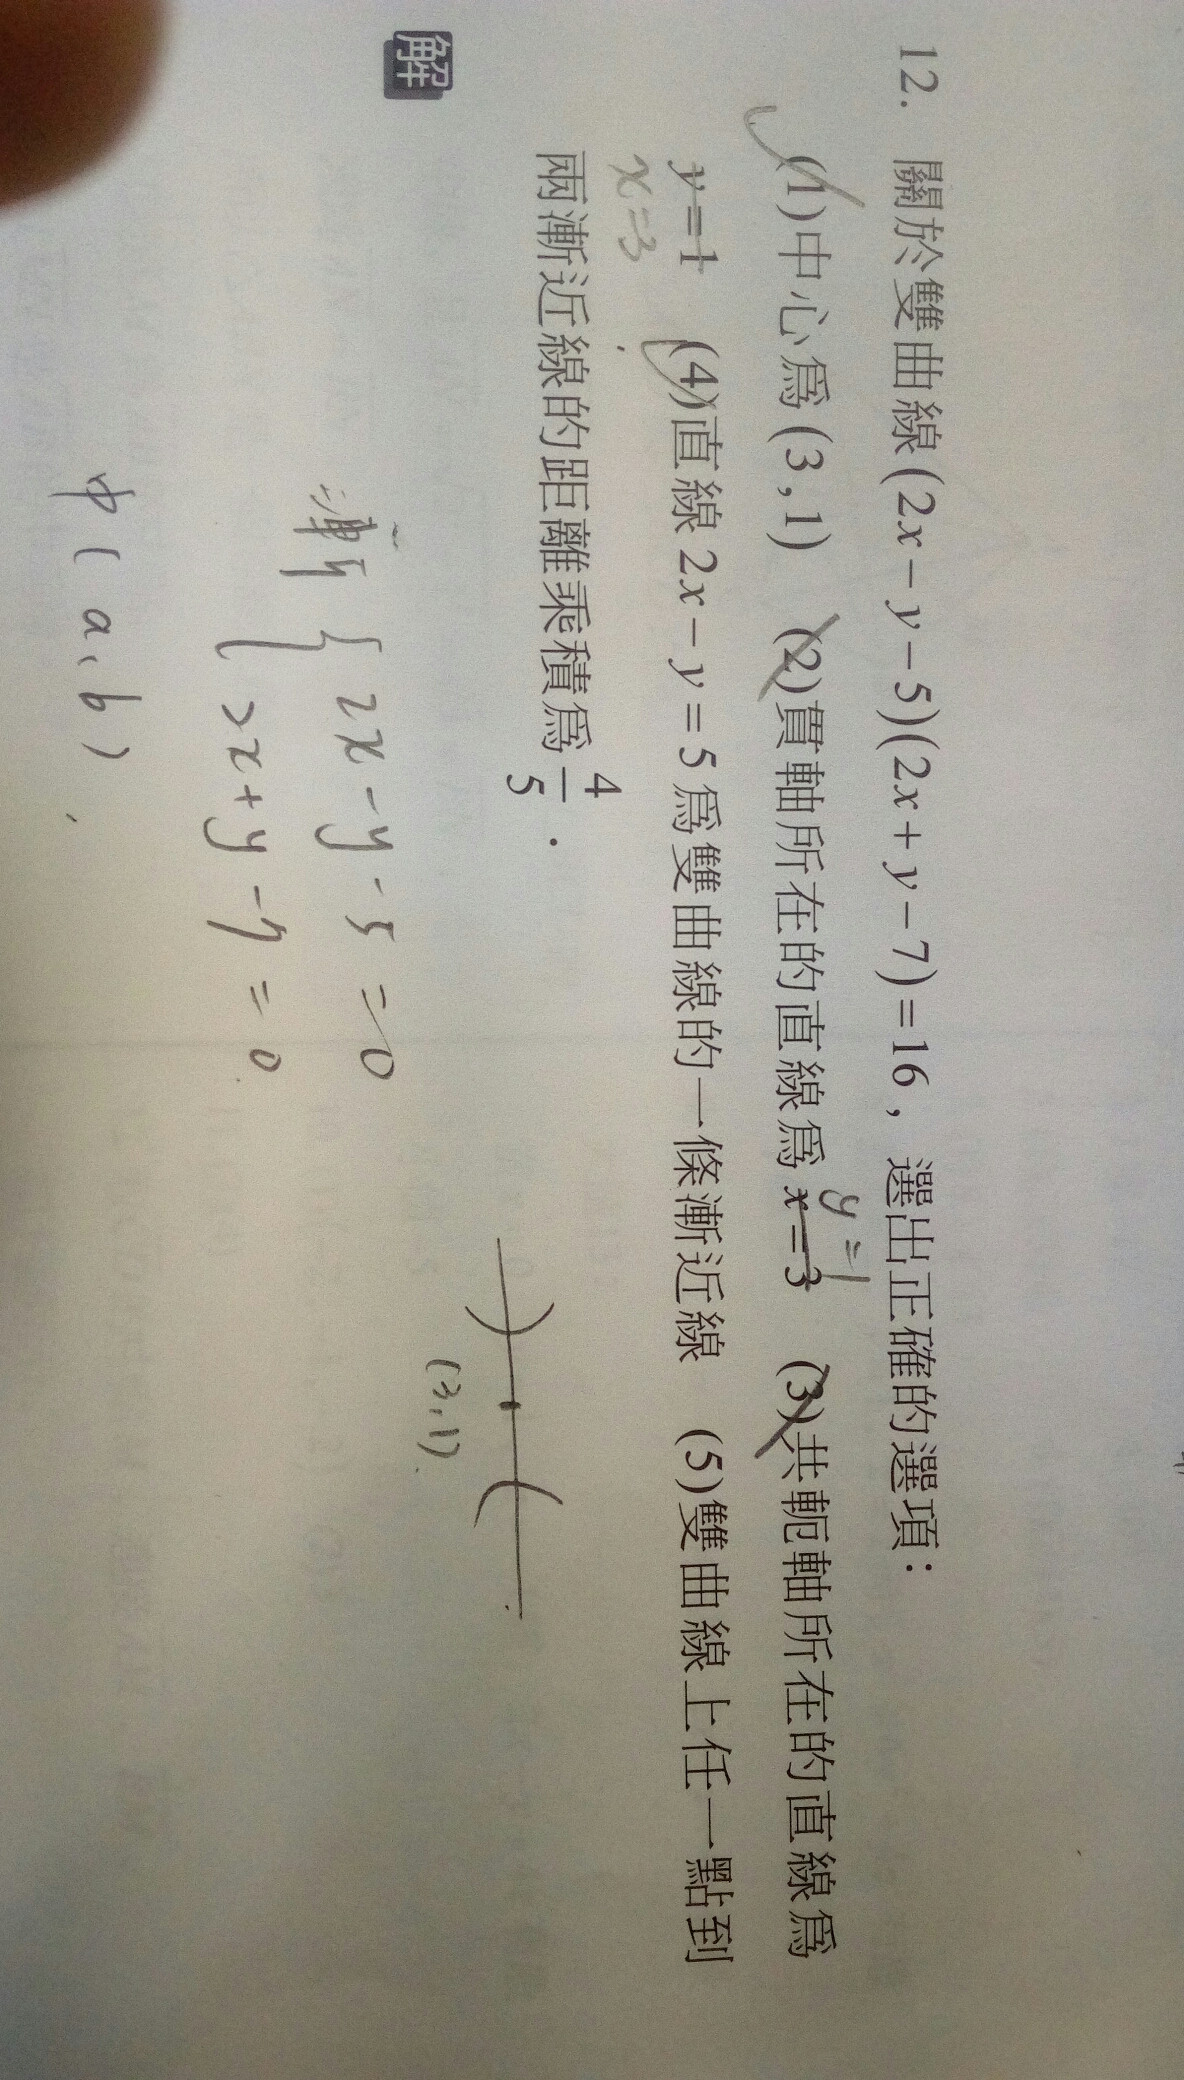 12. 關於雙曲線(2x－y－5)(2x＋y－7)=16，選出正確的選項：
(1)中心為(3,1) (2)貫軸所在的直線為x=3 (3)共軛軸所在的直線為
y=1
y=1 (4)直線2x－y=5為雙曲線的一條漸近線 (5)雙曲線上任一點到
x=3
兩漸近線的距離乘積為4/5．
解
(3,1)
漸{2x-y-5=0
2x+y-7=0
中(a,b)